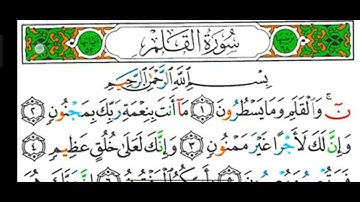 سُورَةُ الْقَلَمِ
بِسْمِ اللَّهِ الرَّحْمَٰنِ الرَّحِيمِ
نٓ ۚ وَالْقَلَمِ وَمَا يَسْطُرُونَ ۝١ مَآ أَنتَ بِنِعْمَةِ رَبِّكَ بِمَجْنُونٍ ۝٢
وَإِنَّ لَكَ لَأَجْرًا غَيْرَ مَمْنُونٍ ۝٣ وَإِنَّكَ لَعَلَىٰ خُلُقٍ عَظِيمٍ ۝٤